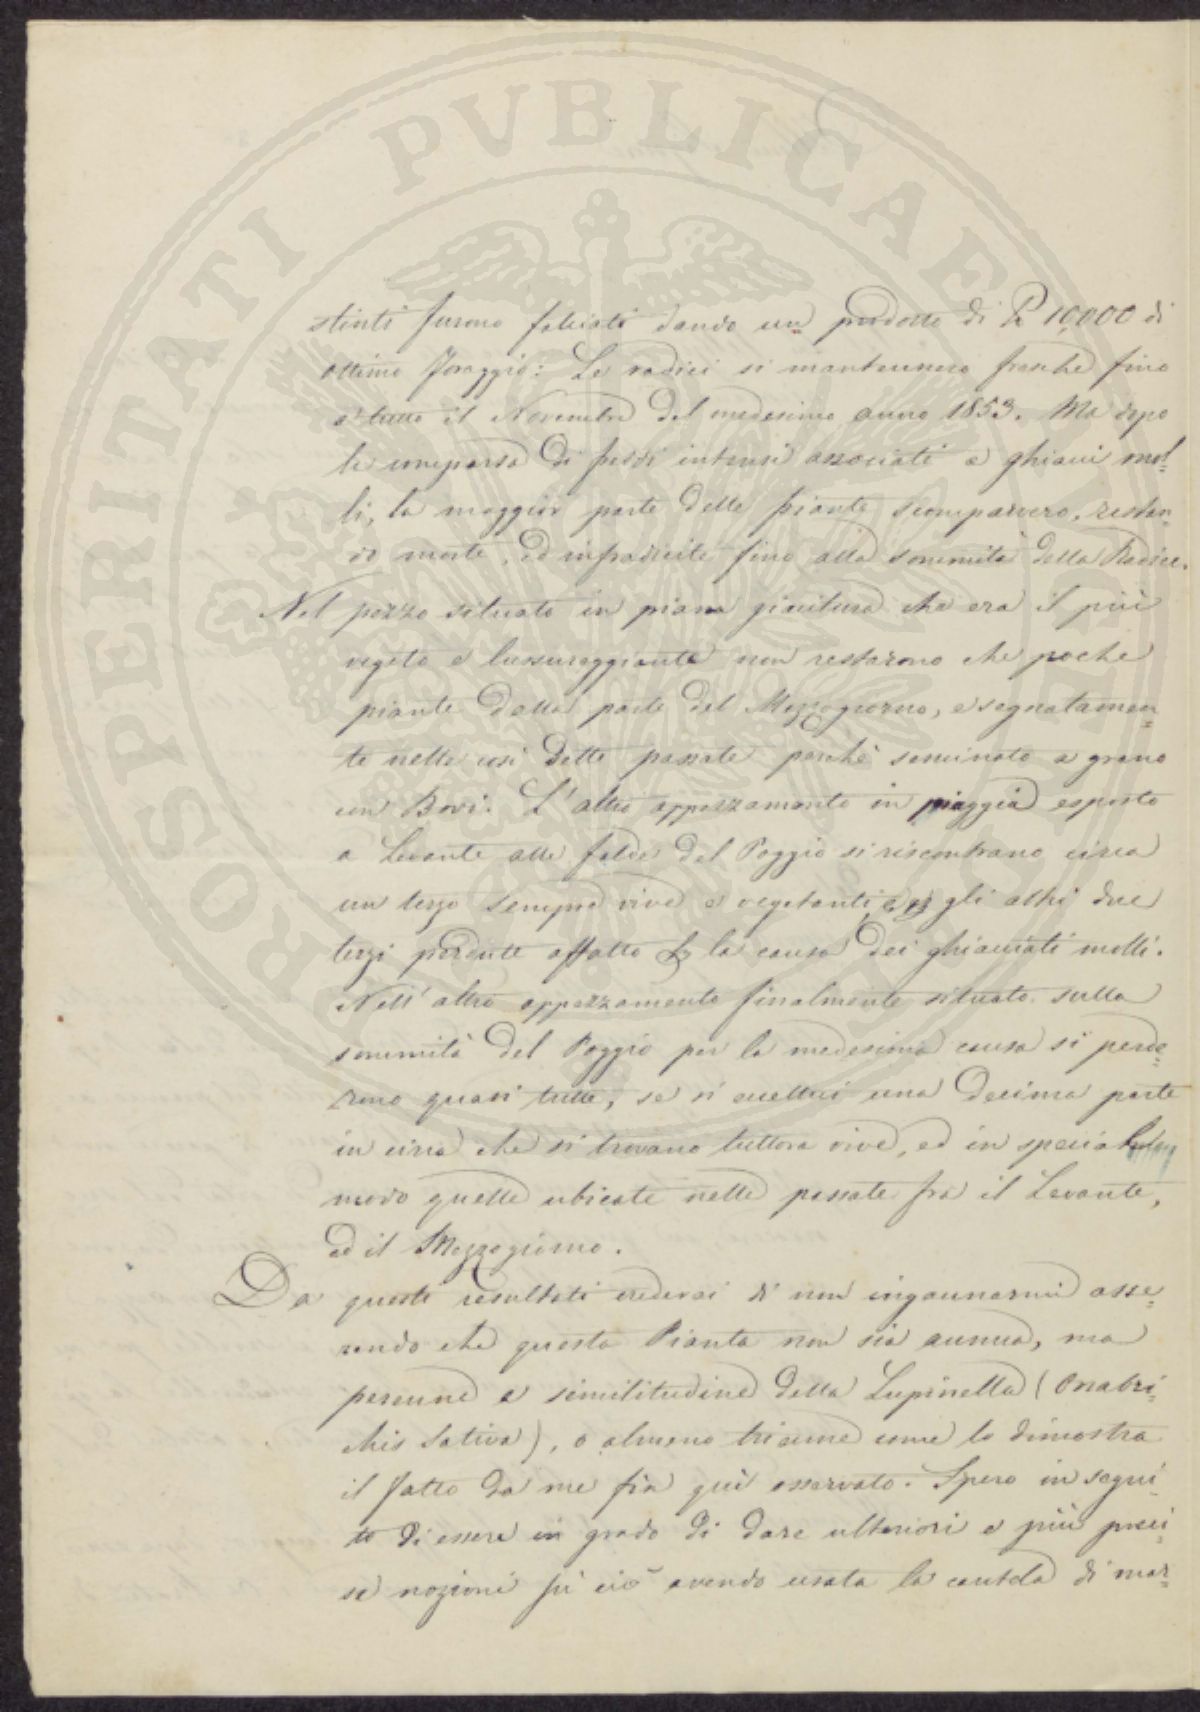 PROSPERITATI PVBLICAE
stinti furono falciati dando un prodotto di 10,000 di
ottimo foraggio: Le radici si mantennero fresche fino
a tutto il Novembre del medesimo anno 1853. Ma dopo
la comparsa di freddi intensi associati a ghiacci mol=
li, la maggior parte delle piante scomparvero, restan=
do morte, ed infradicite fino alla sommità della Radice.
Nel pezzo situato in piana giacitura che era il più
vegeto e lussureggiante non restarono che poche
piante dalla parte del Mezzogiorno, e segnatamen=
te nelle così dette passate perchè seminato a grano
con Bovi. L'altro appezzamento in piaggia esposto
a Levante alle falde del Poggio si riscontrano circa
un terzo sempre vive e vegetanti, gli altri due
terzi perdute affatto la causa dei ghiacciati molli.
Nell'altro appezzamento finalmente situato sulla
sommità del Poggio per la medesima causa si perde=
rono quasi tutte, se si eccettui una decima parte
in circa che si trovano tuttora vive, ed in special
modo quelle ubicate nelle passate fra il Levante,
ed il Mezzogiorno.
Da questi resultati crederei di non ingannarmi asse=
rendo che questa Pianta non sia annua, ma
perenne a similitudine della Lupinella (Onobri=
chis Sativa), o almeno trienne come lo dimostra
il fatto da me fin quì osservato. Spero in segui=
to di essere in grado di dare ulteriori e più preci=
se nozioni su ciò avendo usata la cautela di mar=